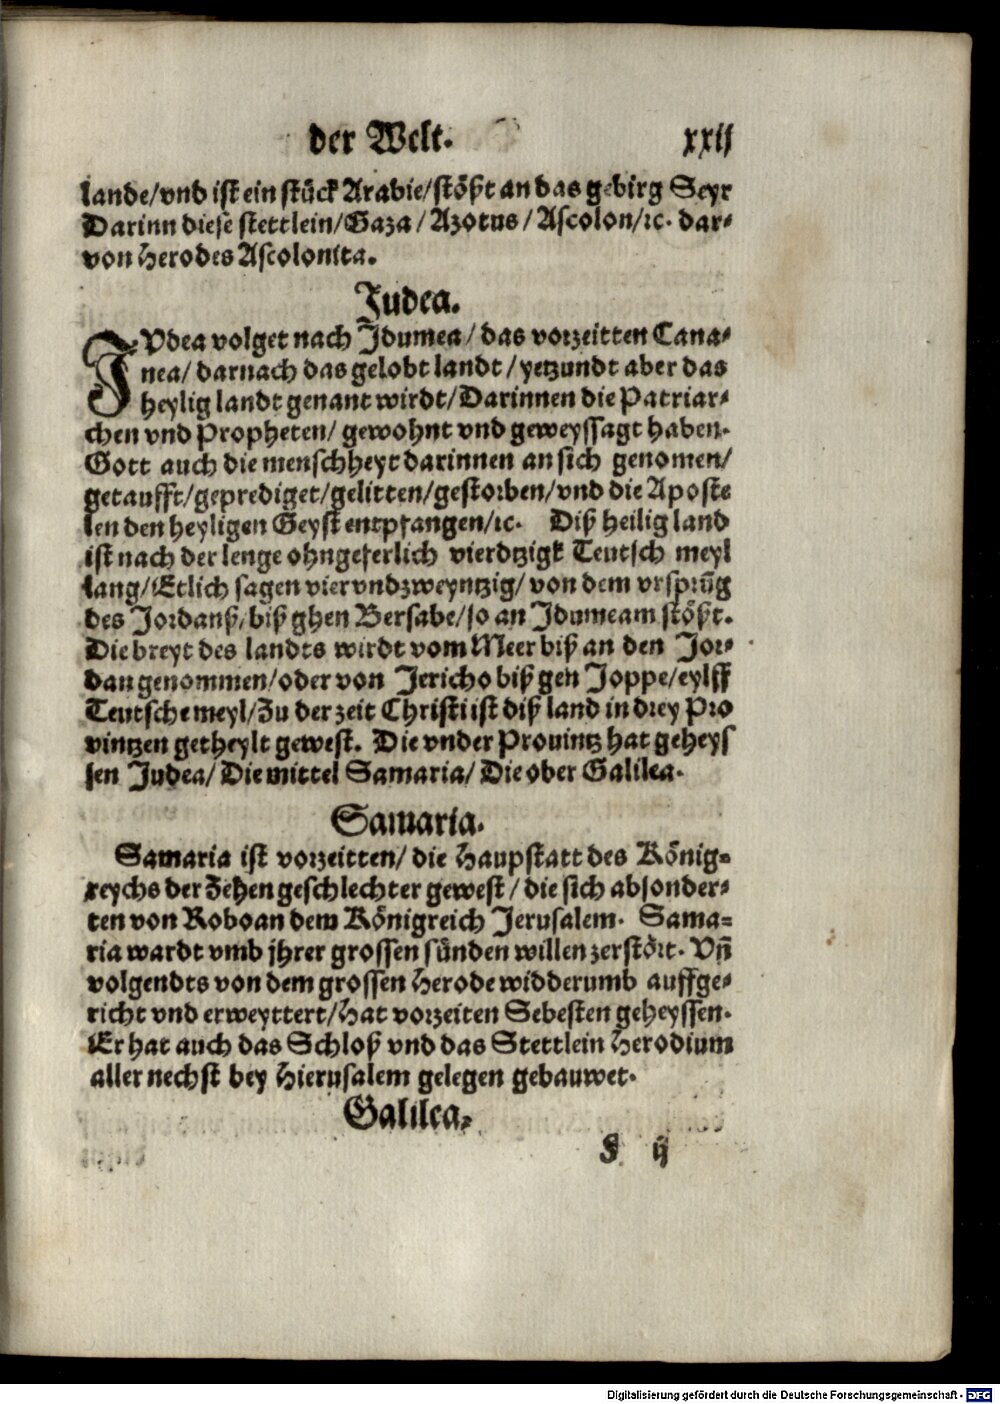 der Welt. xxij
lande/vnd ist ein stück Arabie/stößt an das gebirg Seyr
Darinn diese stettlein/Gaza/Azotus/Ascolon/ꝛc. dar-
von Herodes Ascolonita.
Judea.
JVdea volget nach Jdumea/das vorzeitten Cana-
nea/darnach das gelobt landt/yetzundt aber das
heylig landt genant wirdt/Darinnen die Patriar-
chen vnd Propheten/gewohnt vnd geweyssagt haben.
Gott auch die menschheyt darinnen an sich genomen/
getaufft/geprediget/gelitten/gestorben/vnd die Aposte
len den heyligen Geyst entpfangen/ꝛc. Diß heilig land
ist nach der lenge ohngeferlich vierdtzigk Teutsch meyl
lang/Etlich sagen viervndzweyntzig/von dem vrsprūg
des Jordanß/biß ghen Bersabe/so an Jdumeam stößt.
Die breyt des landts wirdt vom Meer biß an den Jor-
dan genommen/oder von Jericho biß gen Joppe/eylff
Teutsche meyl/Zu der zeit Christi ist diß land in drey Pro
vintzen getheylt gewest. Die vnder Prouintz hat geheys
sen Judea/Die mittel Samaria/Die ober Galilea.
Samaria.
Samaria ist vorzeitten/die Haupstatt des König-
reychs der Zehen geschlechter gewest/die sich absonder-
ten von Roboan dem Königreich Jerusalem. Sama-
ria wardt vmb jhrer grossen sünden willen zerstört. Vñ
volgendts von dem grossen Herode widderumb auffge-
richt vnd erweyttert/Hat vorzeiten Sebesten geheyssen.
Er hat auch das Schloß vnd das Stettlein Herodium
aller nechst bey Hierusalem gelegen gebauwet.
Galilea.
F ij
Digitalisierung gefördert durch die Deutsche Forschungsgemeinschaft - DFG